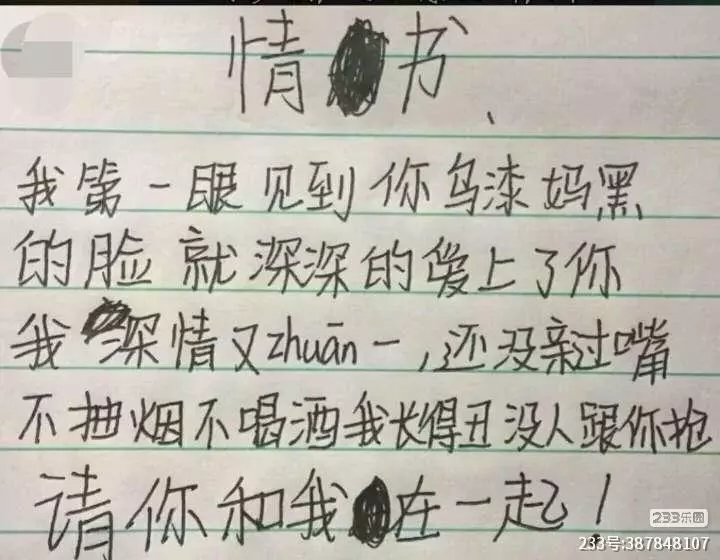 情书、
我第一眼见到你乌漆妈黑
的脸就深深的爱上了你
我深情又zhuān一,还没亲过嘴
不抽烟不喝酒我长得丑没人跟你抢
请你和我在一起!
233乐园
233号:387848107